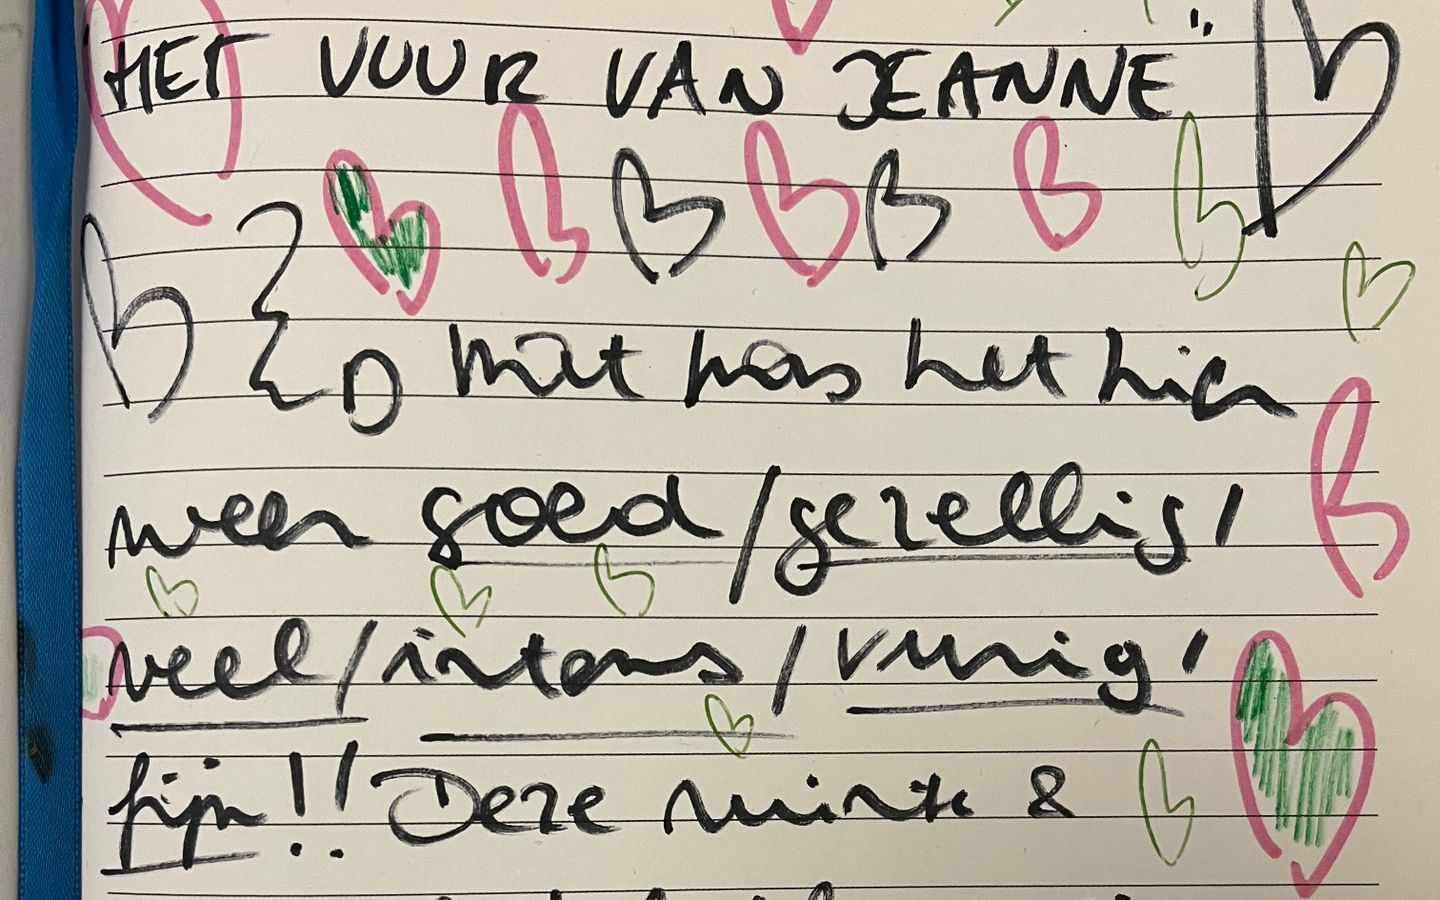 HET VUUR VAN JEANNE"
Wat was het hier
weer goed/gezellig/
veel/intens/vurig/
fijn!! Deze ruimte &